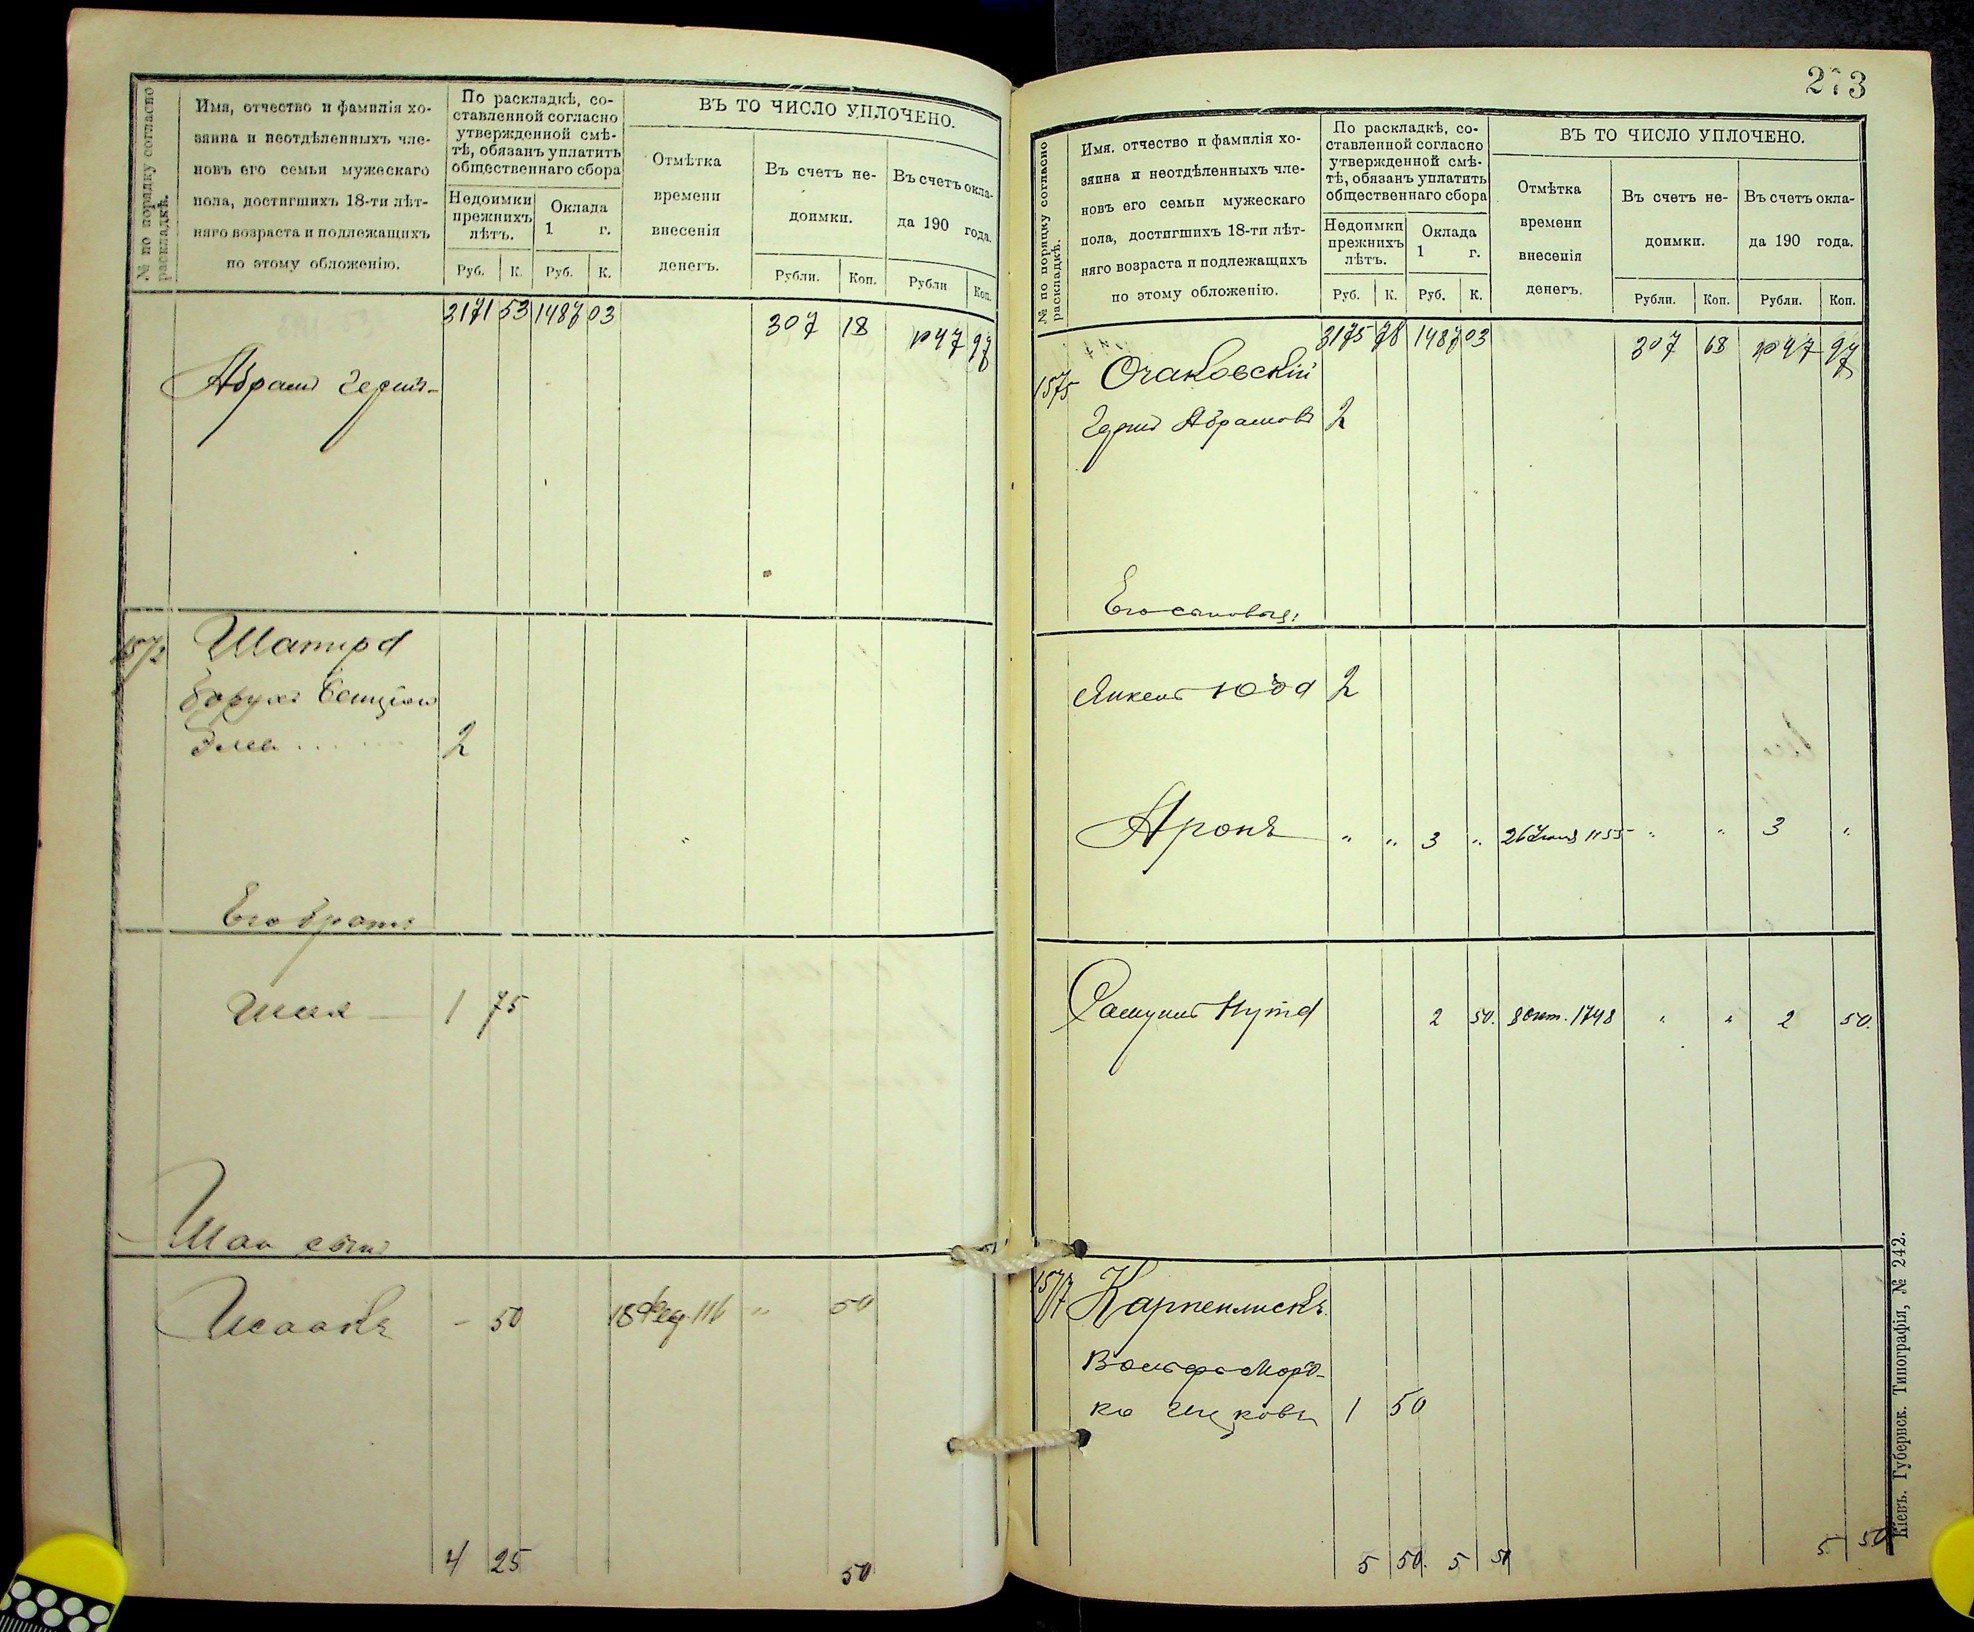 № по порядку согласно раскладкѣ.
Имя, отчество и фамилія хо-
зяина и неотдѣленныхъ чле-
новъ его семьи мужескаго
пола, достигшихъ 18-ти лѣт-
няго возраста и подлежащихъ
по этому обложенію.
По раскладкѣ, со-
ставленной согласно
утвержденной смѣ-
тѣ, обязанъ уплатить
общественнаго сбора
Недоимки
прежнихъ
лѣтъ.
Оклада
1 г.
Руб. К. Руб. К.
ВЪ ТО ЧИСЛО УПЛОЧЕНО.
Отмѣтка
времени
внесенія
денегъ.
Въ счетъ не-
доимки.
Въ счетъ окла-
да 190 года.
Рубли. Коп. Рубли Коп.
3171 53 1487 03 307 18 1047 97
Абрамъ Герш-
1572 Шапира
Борухъ Бенціон
Элев 2
Его братъ
Шая 1 75
Шаи сынъ
Исаакъ - 50 18 Фев. 116 " 50
4 25 50
273
№ по порядку согласно раскладкѣ.
Имя. отчество и фамилія хо-
зяина и неотдѣленныхъ чле-
новъ его семьи мужескаго
пола, достигшихъ 18-ти лѣт-
няго возраста и подлежащихъ
по этому обложенію.
По раскладкѣ, со-
ставленной согласно
утвержденной смѣ-
тѣ, обязанъ уплатить
общественнаго сбора
Недоимки
прежнихъ
лѣтъ.
Оклада
1 г.
Руб. К. Руб. К.
ВЪ ТО ЧИСЛО УПЛОЧЕНО.
Отмѣтка
времени
внесенія
денегъ.
Въ счетъ не-
доимки.
Въ счетъ окла-
да 190 года.
Рубли. Коп. Рубли. Коп.
3175 78 1487 03 307 68 1047 97
1575 Очаковскій
Герш Абрамовъ 2
Его сыновья:
Янкель Юда 2
Аронъ " " 3 " 26 1155 " " 3 "
Самуилъ Нута 2 50. 8 Окт. 1748 " " 2 50.
1577 Карпенлискъ
Вольфъ Морд-
ко Ицковъ 1 50
5 50. 5 50 5 50
Кіевъ. Губернск. Типографія, № 242.